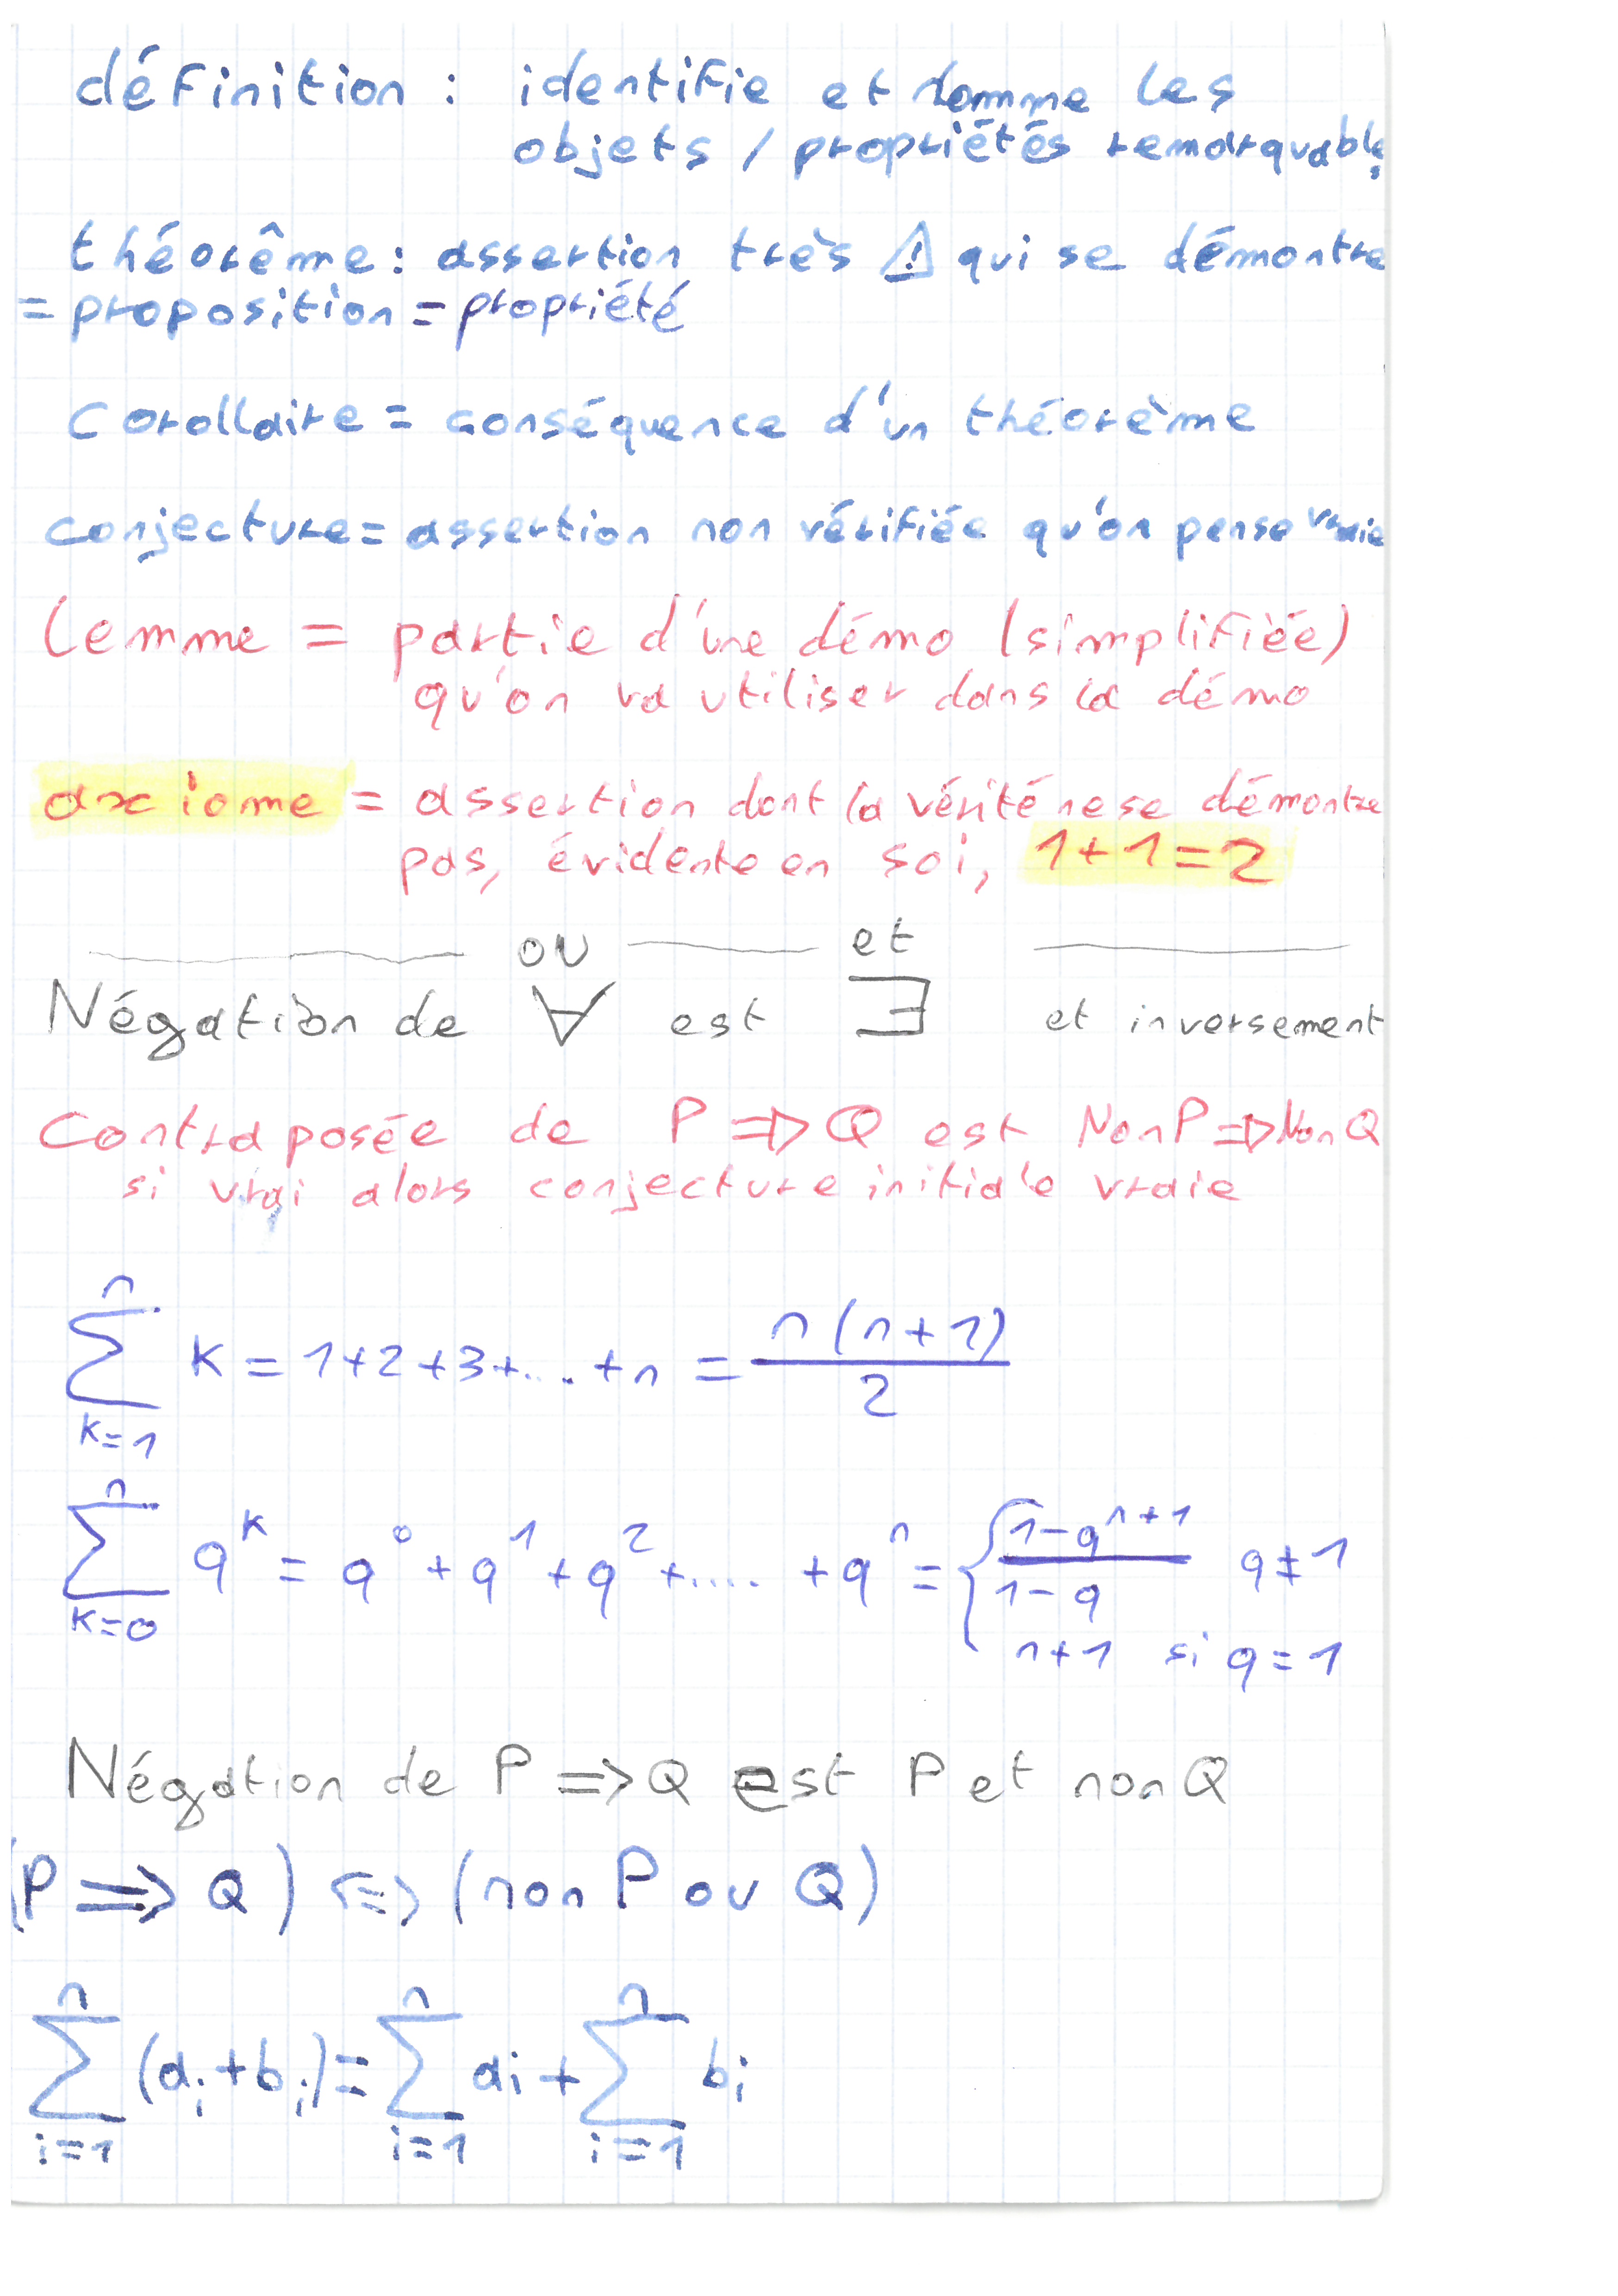 définition : identifie et nomme les
objets / propriétés remarquables
théorême : assertion très ⚠ qui se démontre
= proposition = propriété
Corollaire = conséquence d'un théorème
conjecture = assertion non vérifiée qu'on pense vraie
Lemme = partie d'une démo (simplifiée)
qu'on va utiliser dans la démo
axiome = assertion dont la vérité ne se démontre
pas, évidente en soi, 1+1=2
ou et
Négation de ∀ est ∃ et inversement
Contraposée de P ⇒ Q est Non P ⇒ Non Q
si vrai alors conjecture initiale vraie
∑_{k=1}^{n} k = 1+2+3+....+n = n(n+1)/2
∑_{k=0}^{n} q^k = q^0 + q^1 + q^2 +..... + q^n = { (1-q^{n+1})/(1-q) q≠1
n+1 si q=1
Négation de P ⇒ Q est P et non Q
(P ⇒ Q) ⇔ (non P ou Q)
∑_{i=1}^{n} (a_i+b_i) = ∑_{i=1}^{n} a_i + ∑_{i=1}^{n} b_i